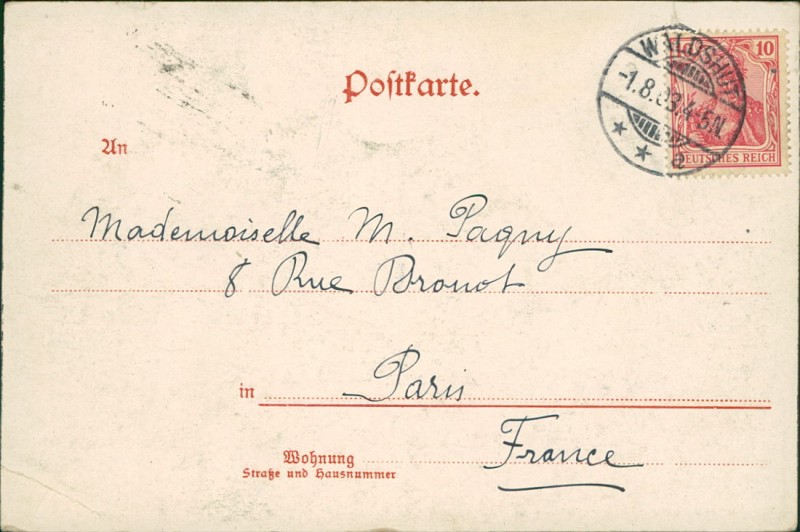 Postkarte.
WALDSHUT
-1.8.03.4-5N.
a
10
DEUTSCHES REICH
An
Mademoiselle M. Pagny
8 Rue Bronot
in Paris
France
Wohnung
Straße und Hausnummer